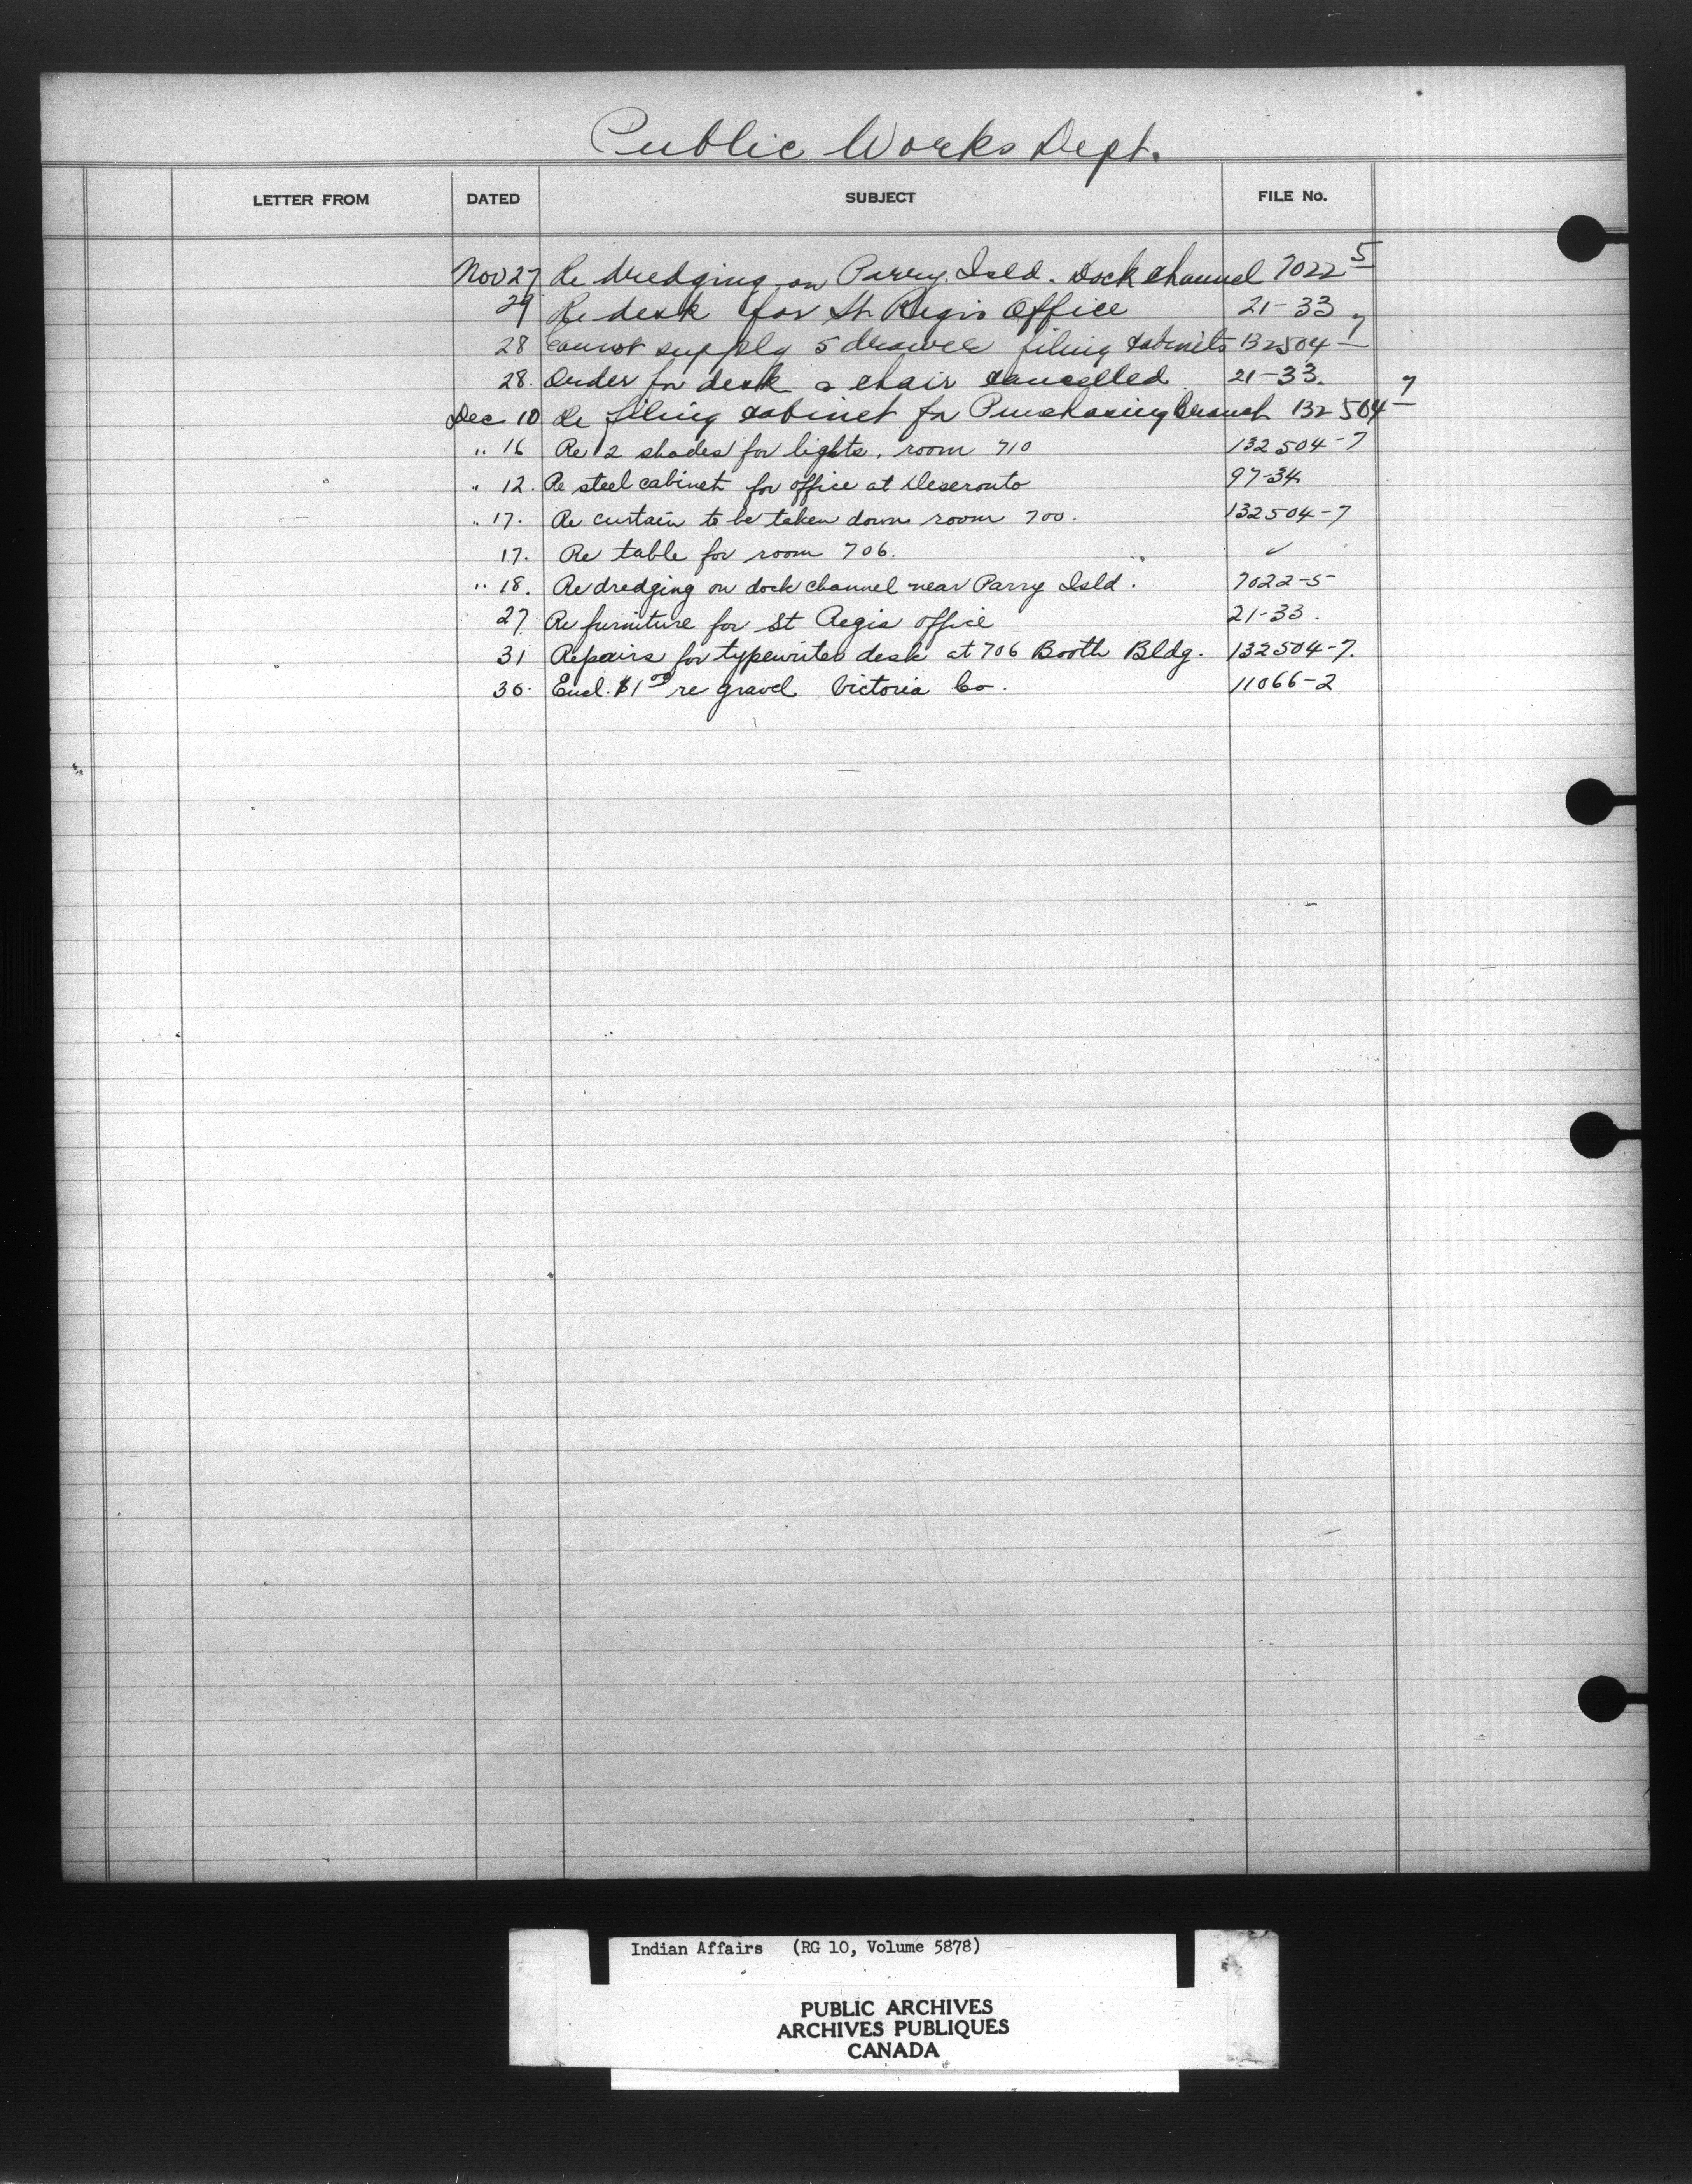 Public Works Dept.
LETTER FROM DATED SUBJECT FILE No.
Nov 27 Re dredging on Parry. Isld. Dock Channel 7022-5
29 Re desk for St Regis Office 21-33
28 Cannot supply 5 drawer filing cabinets 132504-7
28. Order for desk & chair cancelled 21-33.
Dec 10 Re filing cabinet for Purchasing Branch 132504-7
" 16 Re 2 shades for lights, room 710 132504-7
" 12. Re steel cabinet for office at Deseronto 97-34
" 17. Re curtain to be taken down room 700. 132504-7
17. Re table for room 706. ✓
" 18. Re dredging on dock channel near Parry Isld. 7022-5
27 Re furniture for St Regis office 21-33.
31 Repairs for typewriter desk at 706 Booth Bldg. 132504-7.
30. Encl. $1 00 re gravel Victoria Co. 11066-2
Indian Affairs (RG 10, Volume 5878)
PUBLIC ARCHIVES
ARCHIVES PUBLIQUES
CANADA